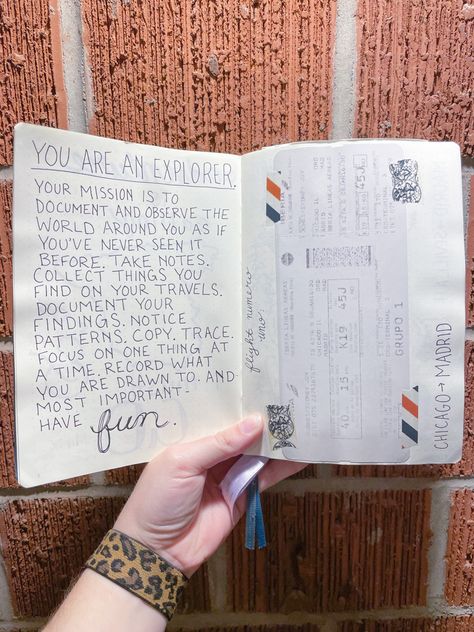 YOU ARE AN EXPLORER.
YOUR MISSION IS TO
DOCUMENT AND OBSERVE THE
WORLD AROUND YOU AS IF
YOU'VE NEVER SEEN IT
BEFORE. TAKE NOTES.
COLLECT THINGS YOU
FIND ON YOUR TRAVELS.
DOCUMENT YOUR
FINDINGS. NOTICE
PATTERNS. COPY. TRACE.
FOCUS ON ONE THING AT
A TIME. RECORD WHAT
YOU ARE DRAWN TO. AND
MOST IMPORTANT-
HAVE fun.
flight numero
uno.
45J
K19 45J
40 15
GRUPO 1
CHICAGO → MADRID